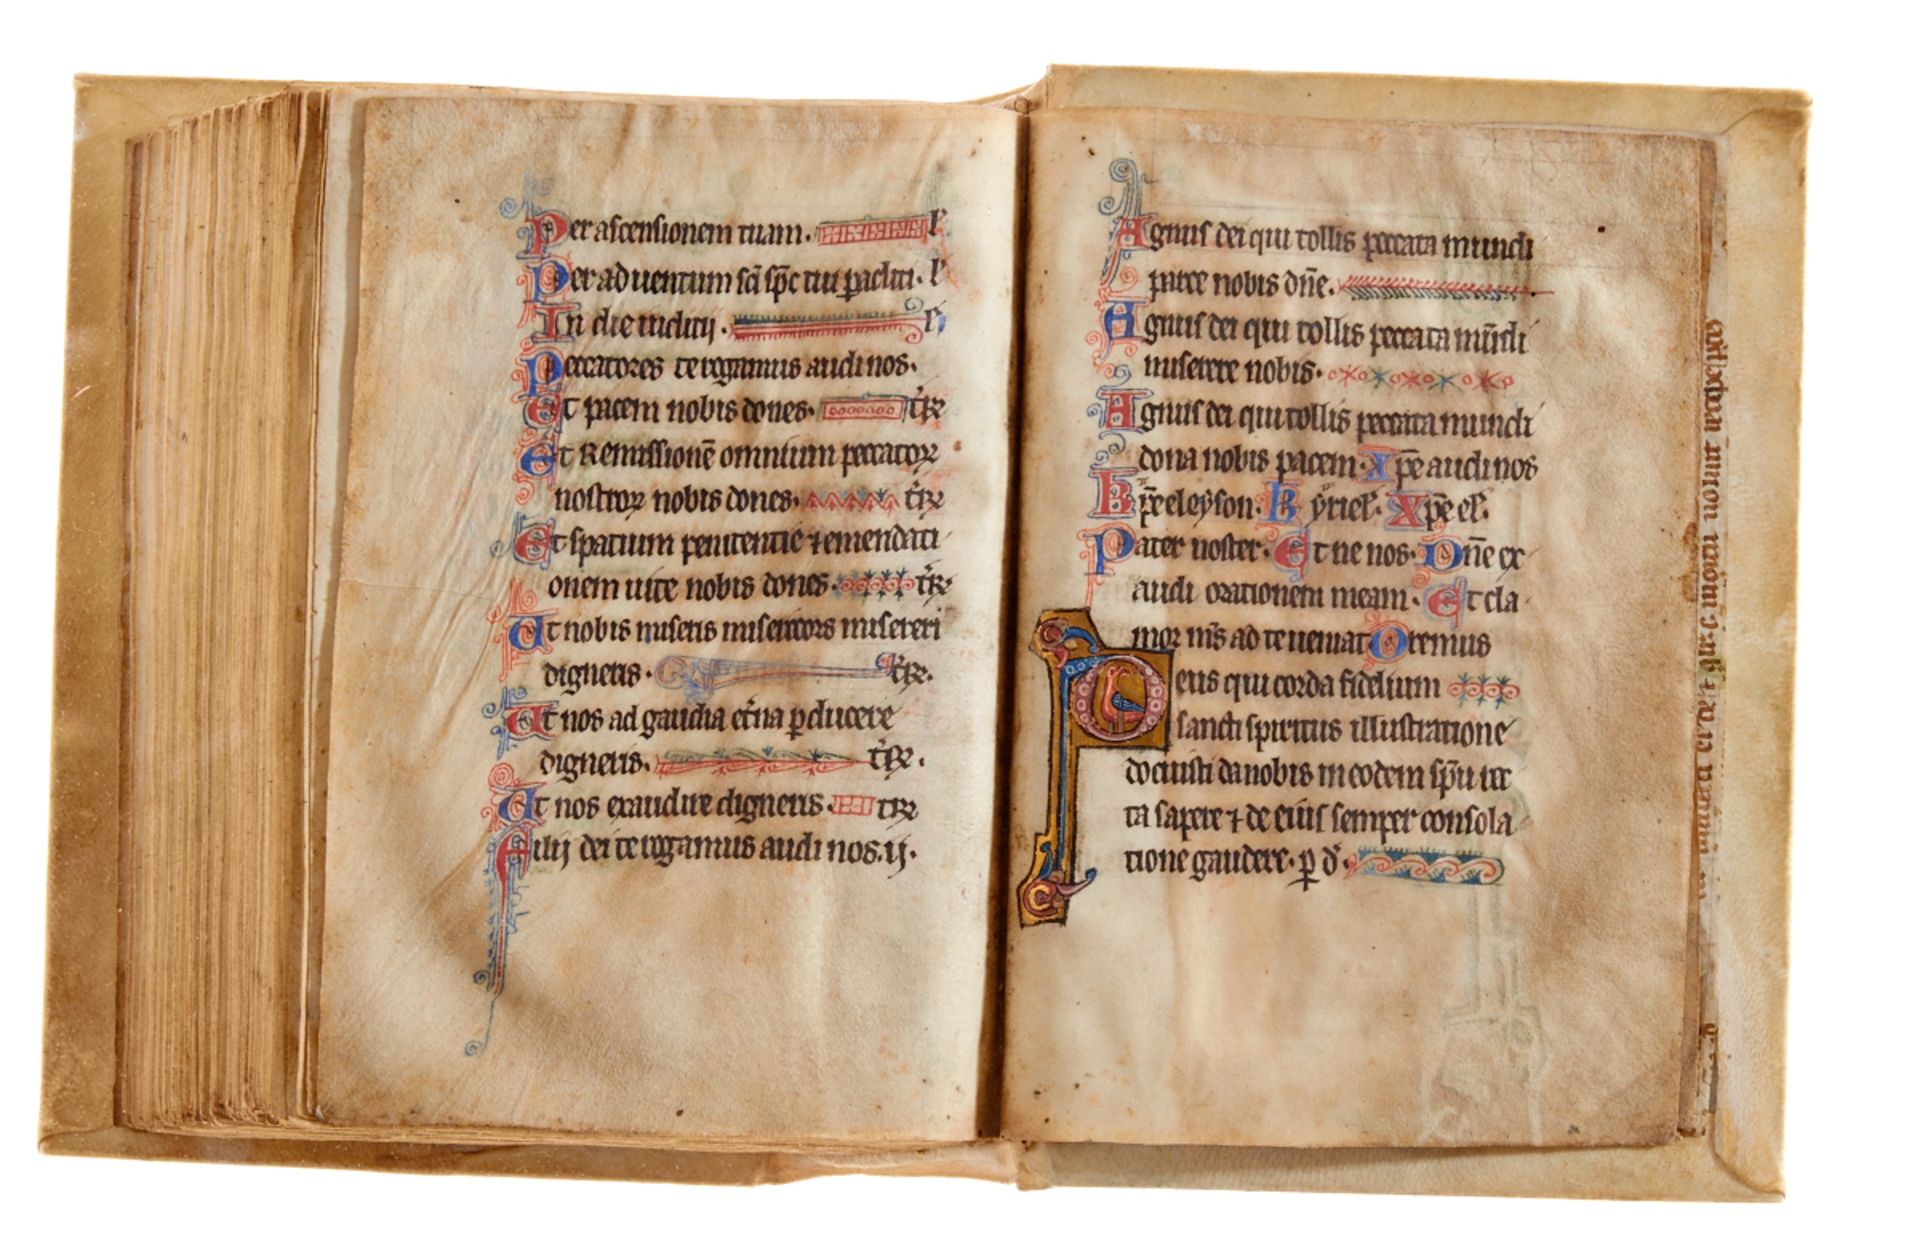 Per ascensionem tuam. l'
Per aduentum sc̄i sp̄c tui ꝑacliti. l'
In die iudicij. l'
Peccatores te rogamus audi nos.
Et pacem nobis dones. t̄r̄
Et Remissionē omnium peccatoꝝ
nostroꝝ nobis dones. t̄r̄
Et spatium penitentie ⁊ emendati
onem uite nobis dones. t̄r̄
Ut nobis miseris misericors misereri
digneris. t̄r̄
Ut nos ad gaudia et̄na ꝑducere
digneris. t̄r̄
Ut nos exaudire digneris t̄r̄
Filij dei te rogamus audi nos. ij.
Agnus dei qui tollis peccata mundi
parce nobis dn̄e.
Agnus dei qui tollis peccata mūdi
miserere nobis.
Agnus dei qui tollis peccata mundi
dona nobis pacem. Xp̄e audi nos
Kyrieleyson. Kyriel'. Xp̄e el'.
Pater noster. Et ne nos. Dn̄e ex
audi orationem meam. Et cla
mor m̄s ad te ueniat Oremus
Deus qui corda fidelium
sancti spiritus illustratione
docuisti da nobis in eodem sp̄u rec
ta sapere ⁊ de eius semper consola
tione gaudere. ꝑ d'.